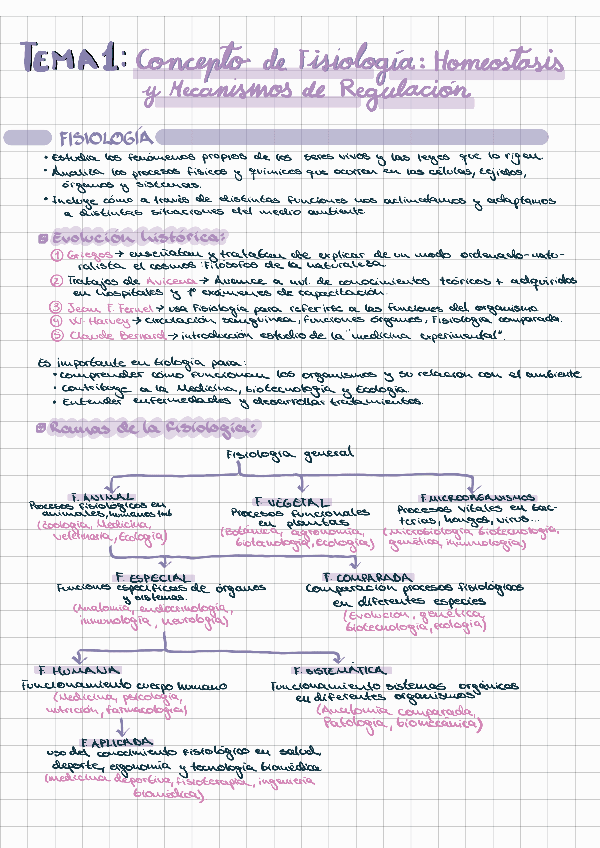 TEMA 1: Concepto de Fisiología: Homeostasis
y Mecanismos de Regulación
FISIOLOGÍA
• Estudia los fenómenos propios de los seres vivos y las leyes que lo rigen.
• Analiza los procesos físicos y químicos que ocurren en las células, tejidos,
órganos y sistemas.
• Incluye cómo a través de distintas funciones nos aclimatamos y adaptamos
a distintas situaciones del medio ambiente
Evolución histórica:
① Griegos → enseñaban y trataban de explicar de un modo ordenado-natu-
ralista el cosmos. Filósofos de la naturaleza.
② Trabajos de Avicena → Avance a nivel de conocimientos teóricos + adquiridos
en hospitales y 1º exámenes de capacitación.
③ Jean F. Fernel → usa Fisiología para referirse a las funciones del organismo
④ W. Harvey → circulación sanguínea, funciones órganos, Fisiología comparada.
⑤ Claude Bernard → introducción estudio de la "medicina experimental".
Es importante en biología para:
• comprender cómo funcionan los organismos y su relación con el ambiente
• Contribuye a la Medicina, biotecnología y Ecología.
• Entender enfermedades y desarrollar tratamientos.
Ramas de la Fisiología:
Fisiología general
F. ANIMAL F. VEGETAL F. MICROORGANISMOS
Procesos fisiológicos en Procesos funcionales Procesos vitales en bac-
animales, humanos tmb en plantas terias, hongos, virus...
(Zoología, Medicina, (Botánica, agronomía, (Microbiología biotecnología,
veterinaria, Ecología) biotecnología, ecología) genética, inmunología)
F. ESPECIAL F. COMPARADA
Funciones específicas de órganos Comparación procesos fisiológicos
y sistemas. en diferentes especies
(Anatomía, endocrinología, (Evolución, genética,
inmunología, neurología) biotecnología, ecología)
F. HUMANA F. SISTEMÁTICA
Funcionamiento cuerpo humano Funcionamiento sistemas orgánicos
(Medicina, psicología, en diferentes organismos
nutrición, farmacología) (Anatomía comparada,
Patología, biomecánica)
F. APLICADA
uso del conocimiento fisiológico en salud,
deporte, ergonomía y tecnología biomédica
(medicina deportiva, fisioterapia, ingeniería
biomédica)